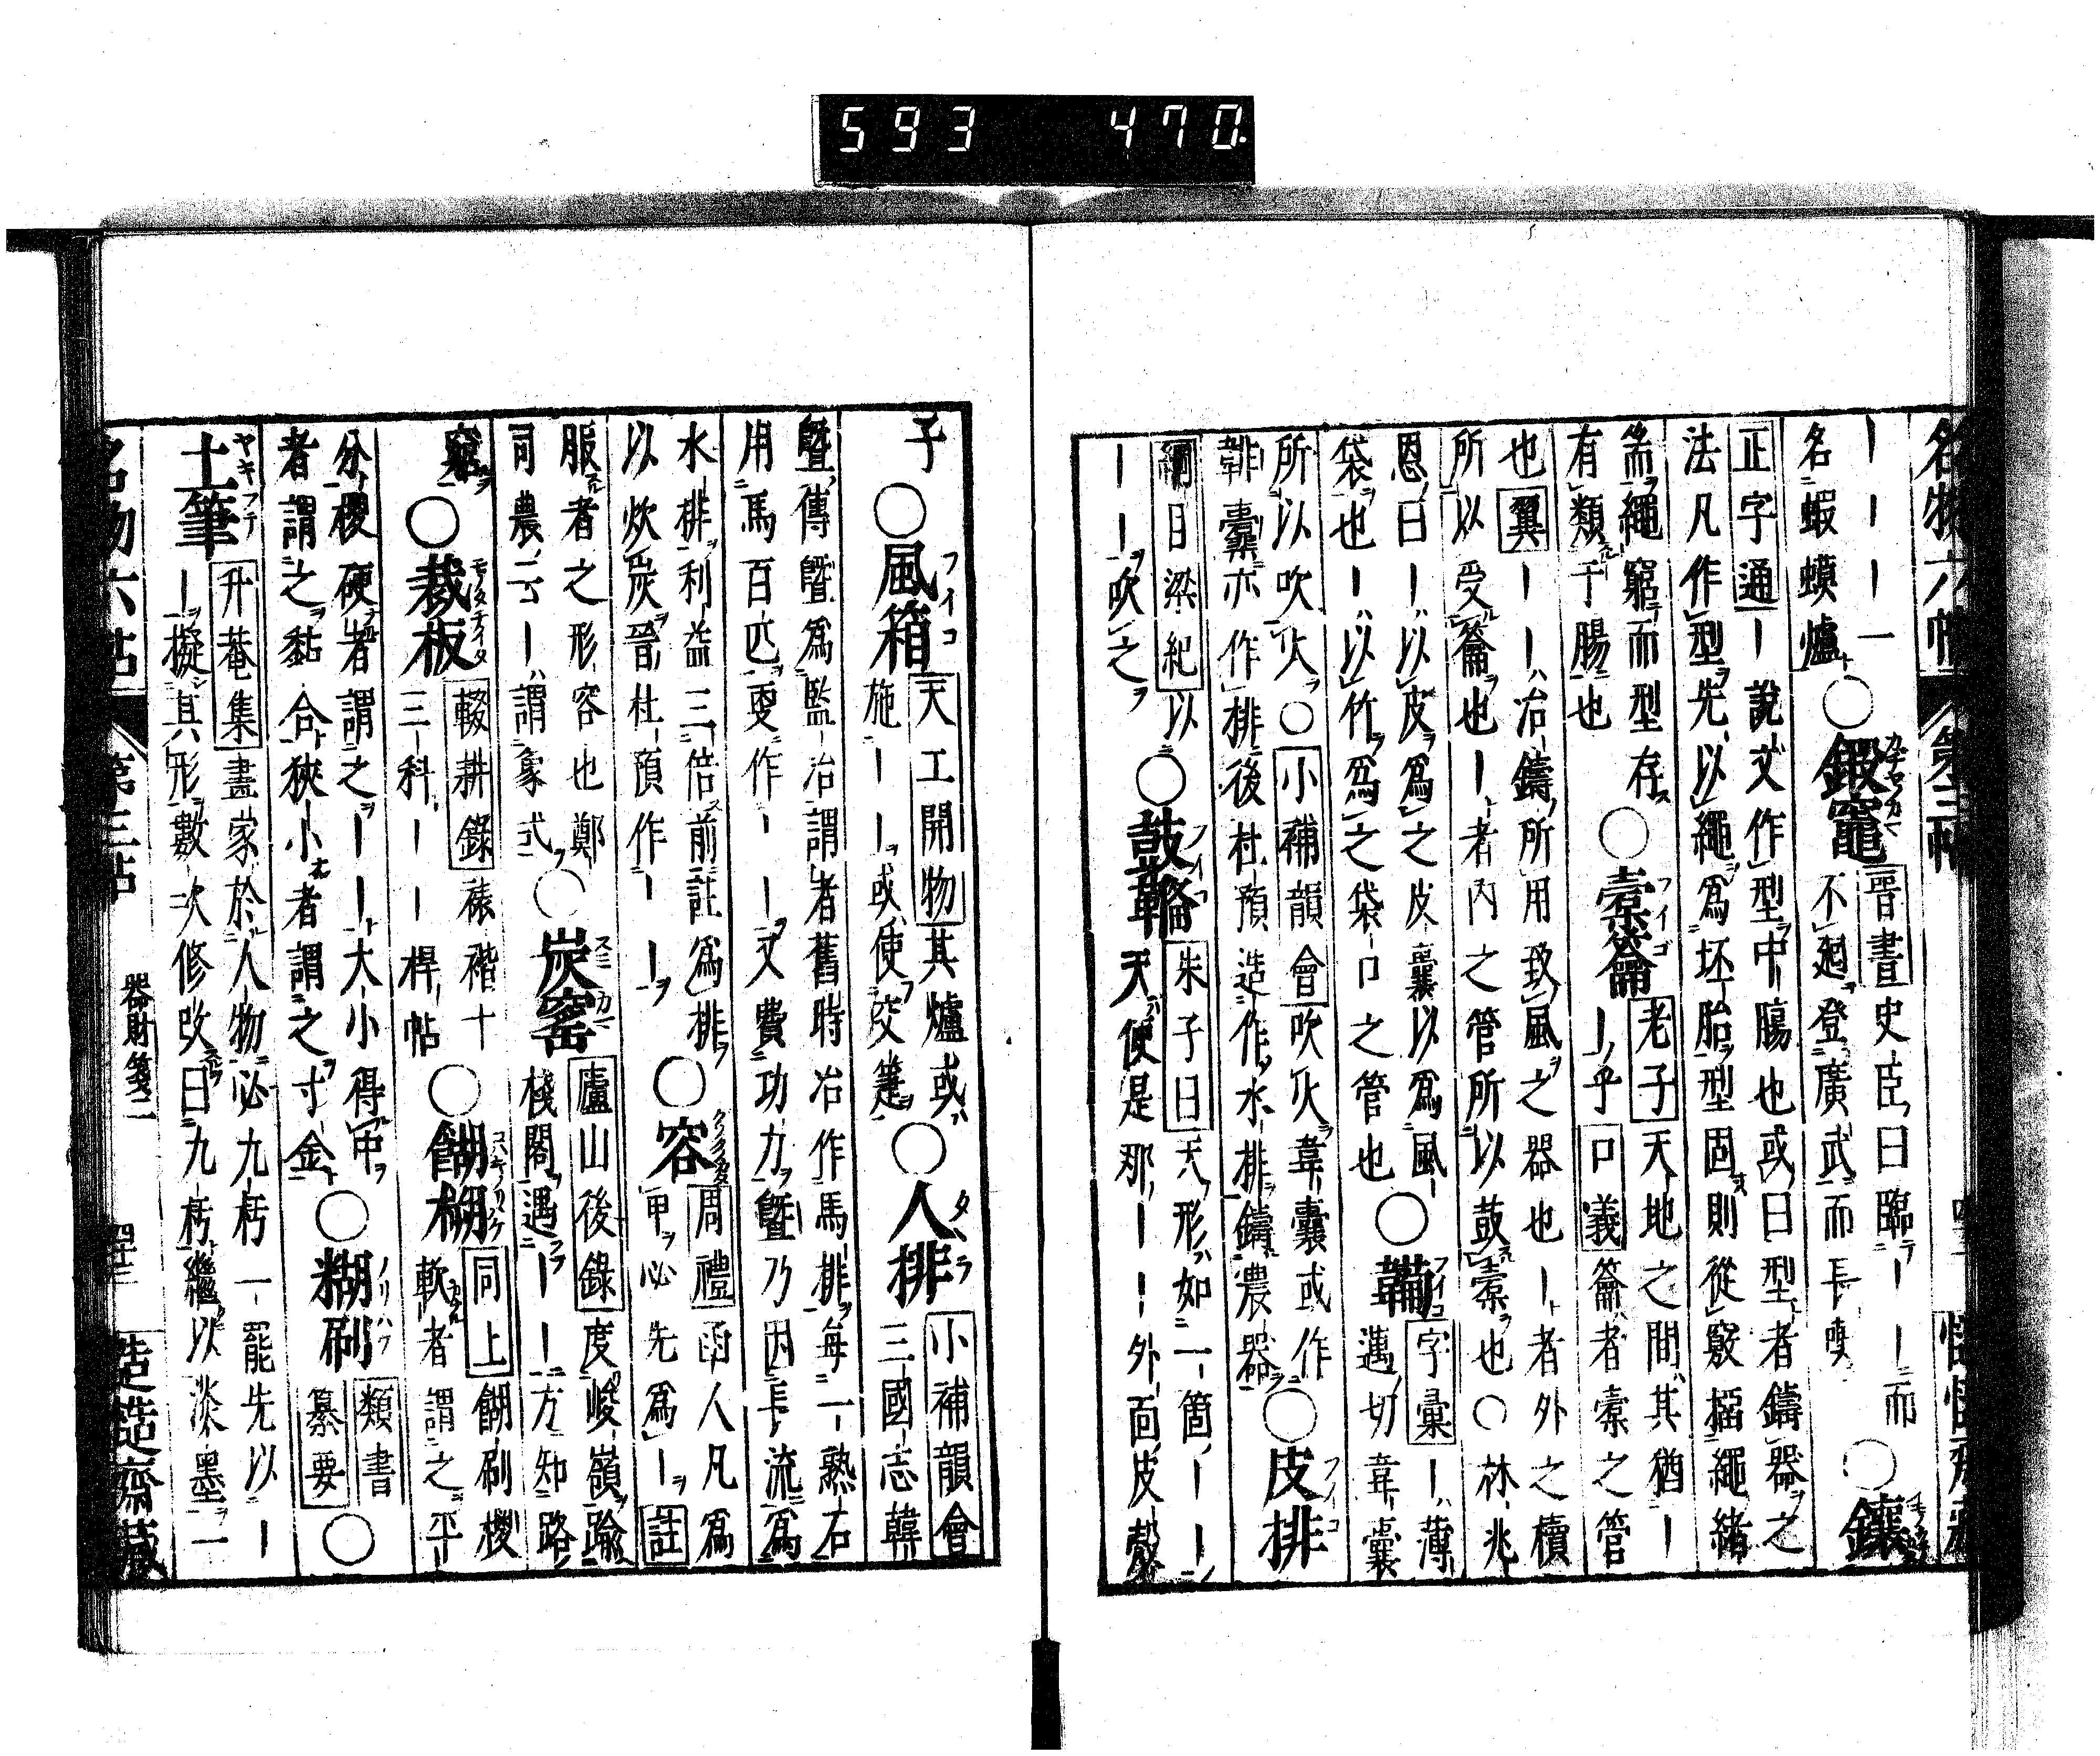 593 470
名物六帖 第三帖
｜｜｜｜一
名蝦蟆爐 ○鍜竈 カヂヤカマ 晉書 史臣曰臨｜｜而
不起登廣武而長嘆 ○鑲
正字通｜說文作型中膓也或曰型者鑄器之
法凡作型先以繩爲坯胎型固則從竅搯繩緒
耑繩窮而型存 ○橐籥 フイゴ 老子 天地之間其猶｜
有類于腸也 ｜乎 口義 籥者橐之管
也 翼｜｜冶鑄所用致風之器也｜者外之櫝
所以受籥也｜者內之管所以鼓橐也○林兆
恩曰｜以皮爲之皮囊以爲風
袋也｜以竹爲之袋口之管也 ○鞴 フイコ 字彙｜薄
邁切韋囊
所以吹火 ○小補韻會 吹火韋囊或作
韛橐亦作排後杜預造作水排鑄農器 ○皮排 フイコ
綱目梁紀 以
｜｜吹之 ○鼓鞴 フイコ 朱子曰 天形如一箇｜｜
天便是那｜｜外面皮殼
子 ○風箱 フイコ 天工開物 其爐或
施｜｜或使交箑 ○人排 タヽラ 小補韻會
三國志韓
曁傳曁爲監冶謂者舊時冶作馬排每一熟石
用馬百匹更作｜｜又費功力曁乃因長流爲
水排利益三倍前註爲排 ○容 周禮 函人凡爲
以炊炭晉杜預作｜｜ 甲必先爲｜註
服者之形容也鄭
司農云｜謂象式 ○炭窰 スミカマ 廬山後錄 度峻嶺踰
棧閣遇｜｜方知路
窮 ○裁板 モノタチイタ 輟耕錄 裱褙十
三科｜｜桿帖 ○餬糊 同上 餬刷㮨
軟者謂之平
分㮨硬者謂之｜｜大小得中
者謂之黏合狹小者謂之寸金 ○糊刷 ノリハケ 類書
纂要 ○
土筆 ヤキフデ 升菴集 畫家於人物必九朽一罷先以｜
｜擬其形數次修改曰九朽繼以淡墨一
名物六帖 第三帖 器財箋二 四十二